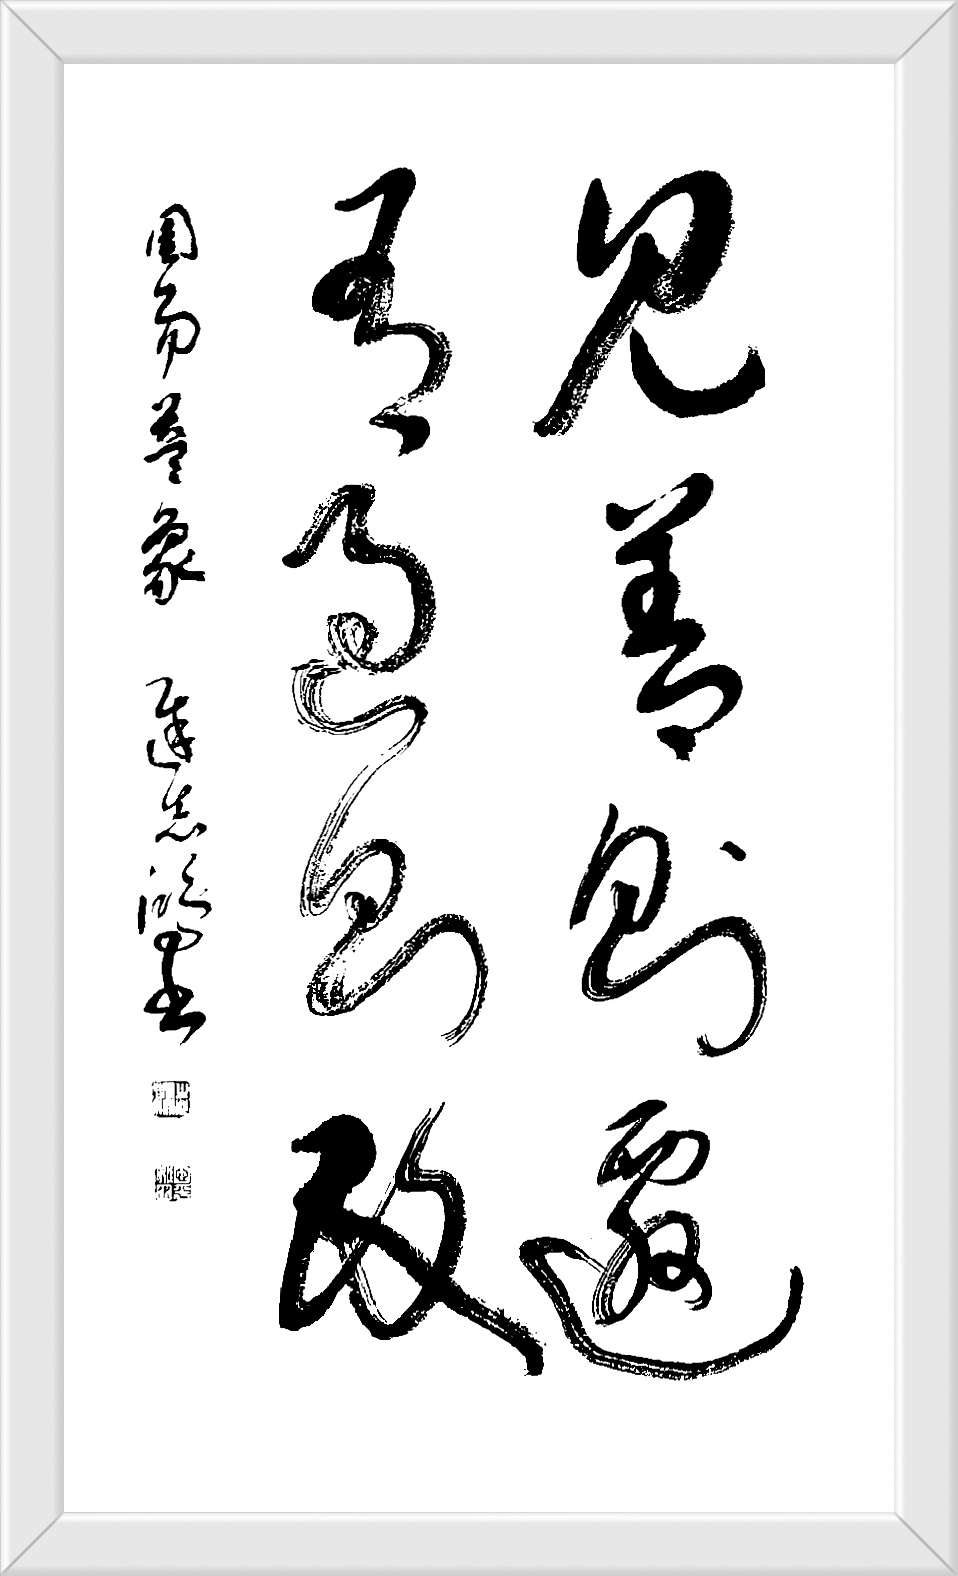 見善則遷
有過則改
周易益象 連志鴻書